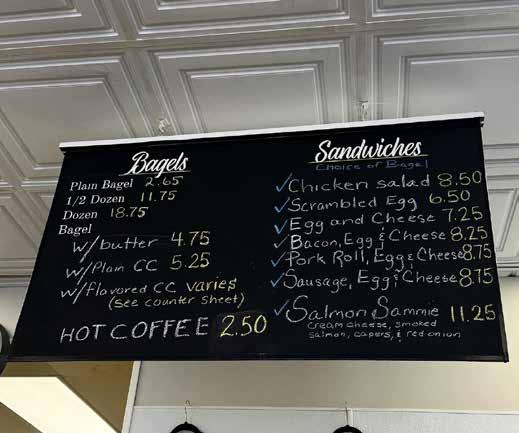 Bagels
Plain Bagel 2.65
1/2 Dozen 11.75
Dozen 18.75
Bagel
w/butter 4.75
w/Plain CC 5.25
w/flavored CC varies
(see counter sheet)
HOT COFFEE 2.50
Sandwiches
Choice of Bagel
✓Chicken salad 8.50
✓Scrambled Egg 6.50
✓Egg and Cheese 7.25
✓Bacon, Egg & Cheese 8.25
✓Pork Roll, Egg & Cheese 8.75
✓Sausage, Egg & Cheese 8.75
✓Salmon Sammie 11.25
cream cheese, smoked
salmon, capers, & red onion